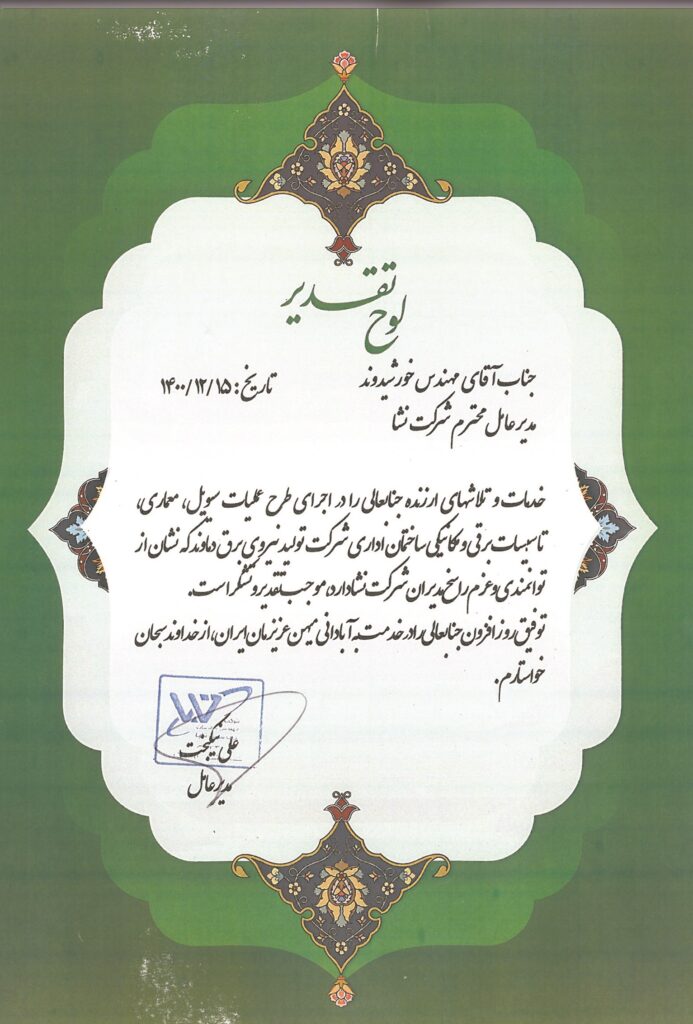 لوح تقدیر
جناب آقای مهندس خورشیدوند
تاریخ: ۱۴۰۰/۱۲/۱۵
مدیرعامل محترم شرکت نشا
خدمات و تلاشهای ارزنده جنابعالی را در اجرای طرح عملیات سویل، معماری،
تاسیسات برقی و مکانیکی ساختمان اداری شرکت تولید نیروی برق دماوند که نشان از
توانمندی و عزم راسخ مدیران شرکت نشا دارد، موجب تقدیر و تشکر است.
توفیق روز افزون جنابعالی را در خدمت به آبادانی میهن عزیزمان ایران، از خداوند سبحان
خواستارم.
علی نیکبخت
مدیرعامل